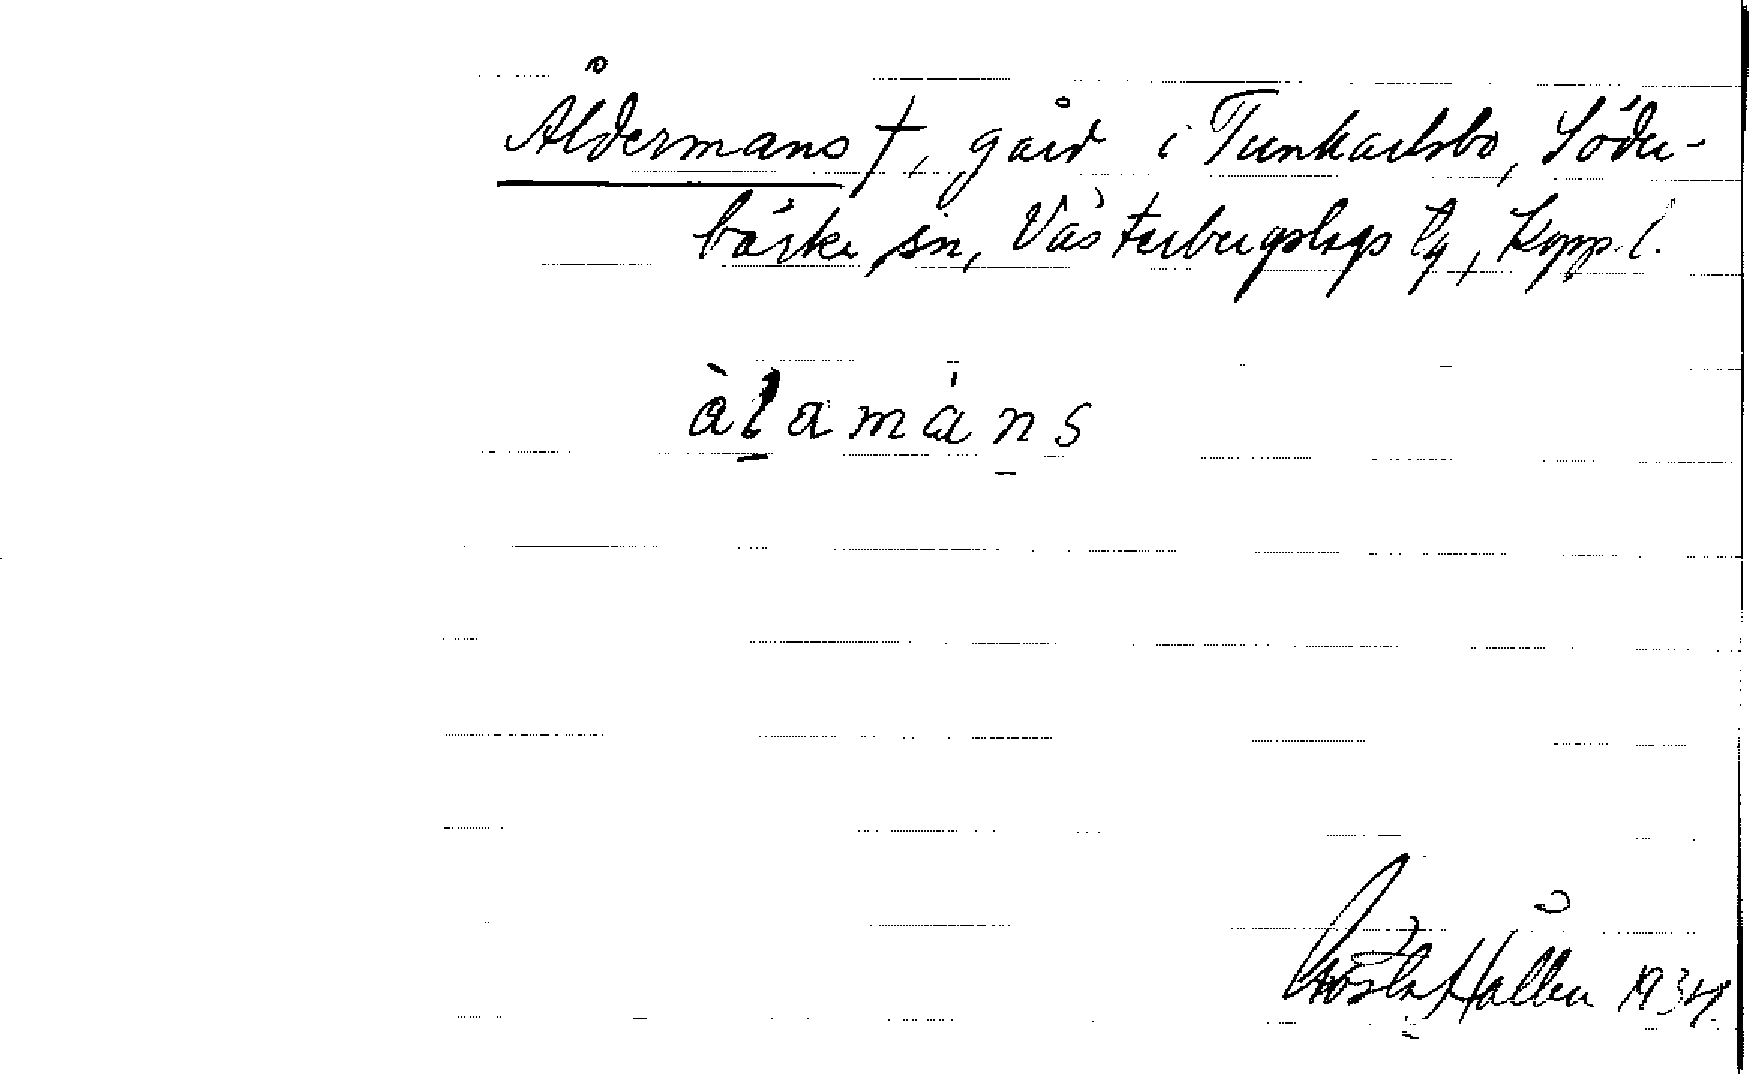 Åldermans †, gård i Tunkarlsbo, Söder-
bärke sn, Västerbergslags tg, Kopp. l.
àlamáns
Gösta Hallen 1934.